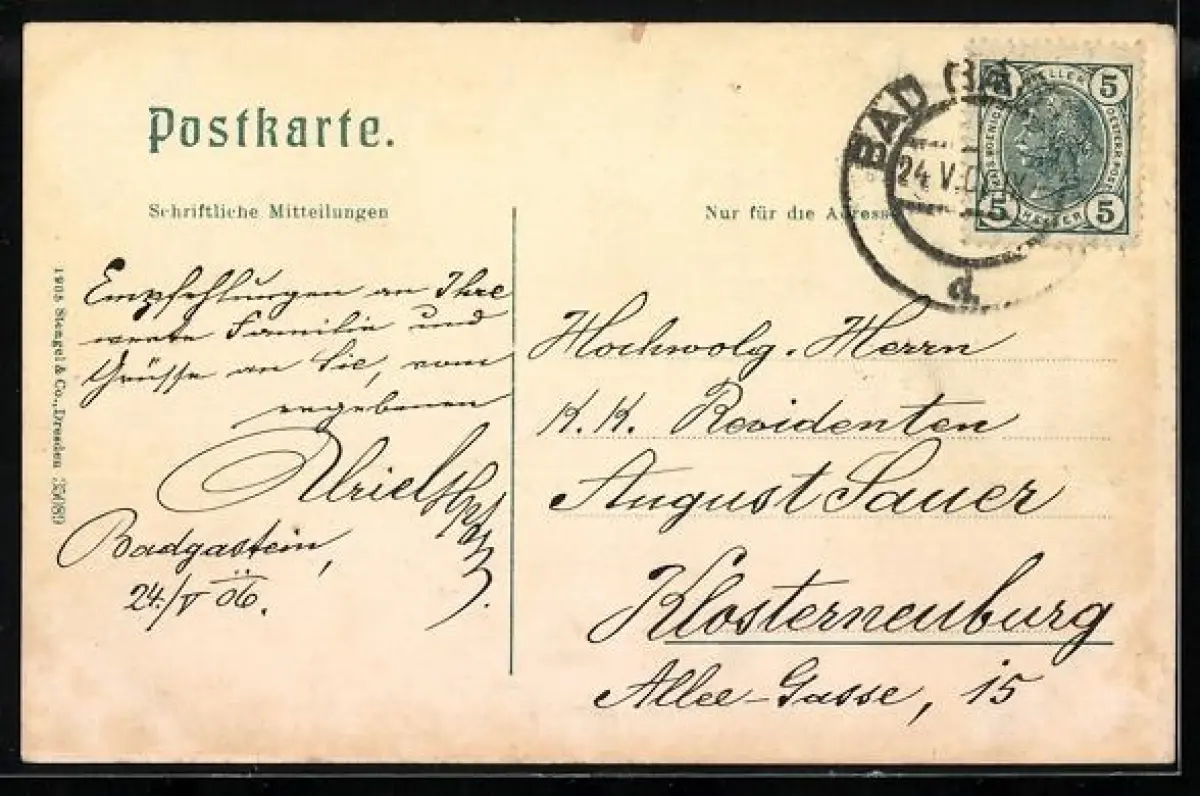 Postkarte.
Schriftliche Mitteilungen
Nur für die Adresse
BAD
24.V.
d
5 HELLER 5
OESTERR. POST
5 HELLER 5
Empfehlungen an Ihre
werte Familie und
Grüsse an Sie, vom
ergebenen
Badgastein,
24./V 06.
Hochwolg. Herrn
K. K. Revidenten
August Sauer
Klosterneuburg
Allee-Gasse, 15
1905 Stengel & Co., Dresden 35089